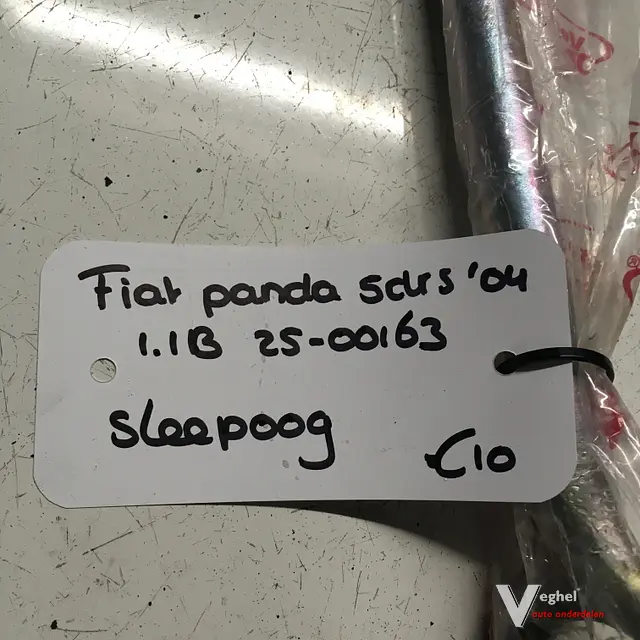 Fiat panda 5drs '04
1.1B 25-00163
sleepoog
€10
Veghel
auto onderdelen